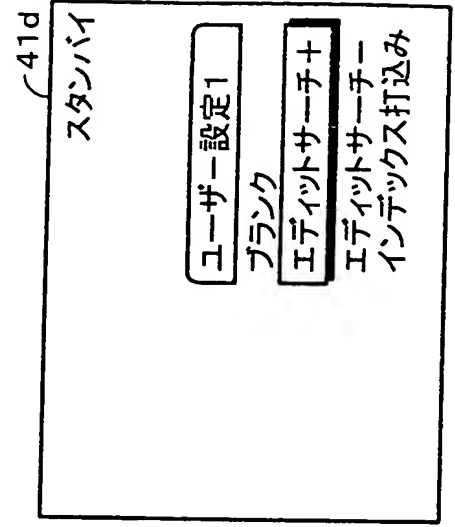 41d
スタンバイ
ユーザー設定1
ブランク
エディットサーチ+
エディットサーチー
インデックス打込み